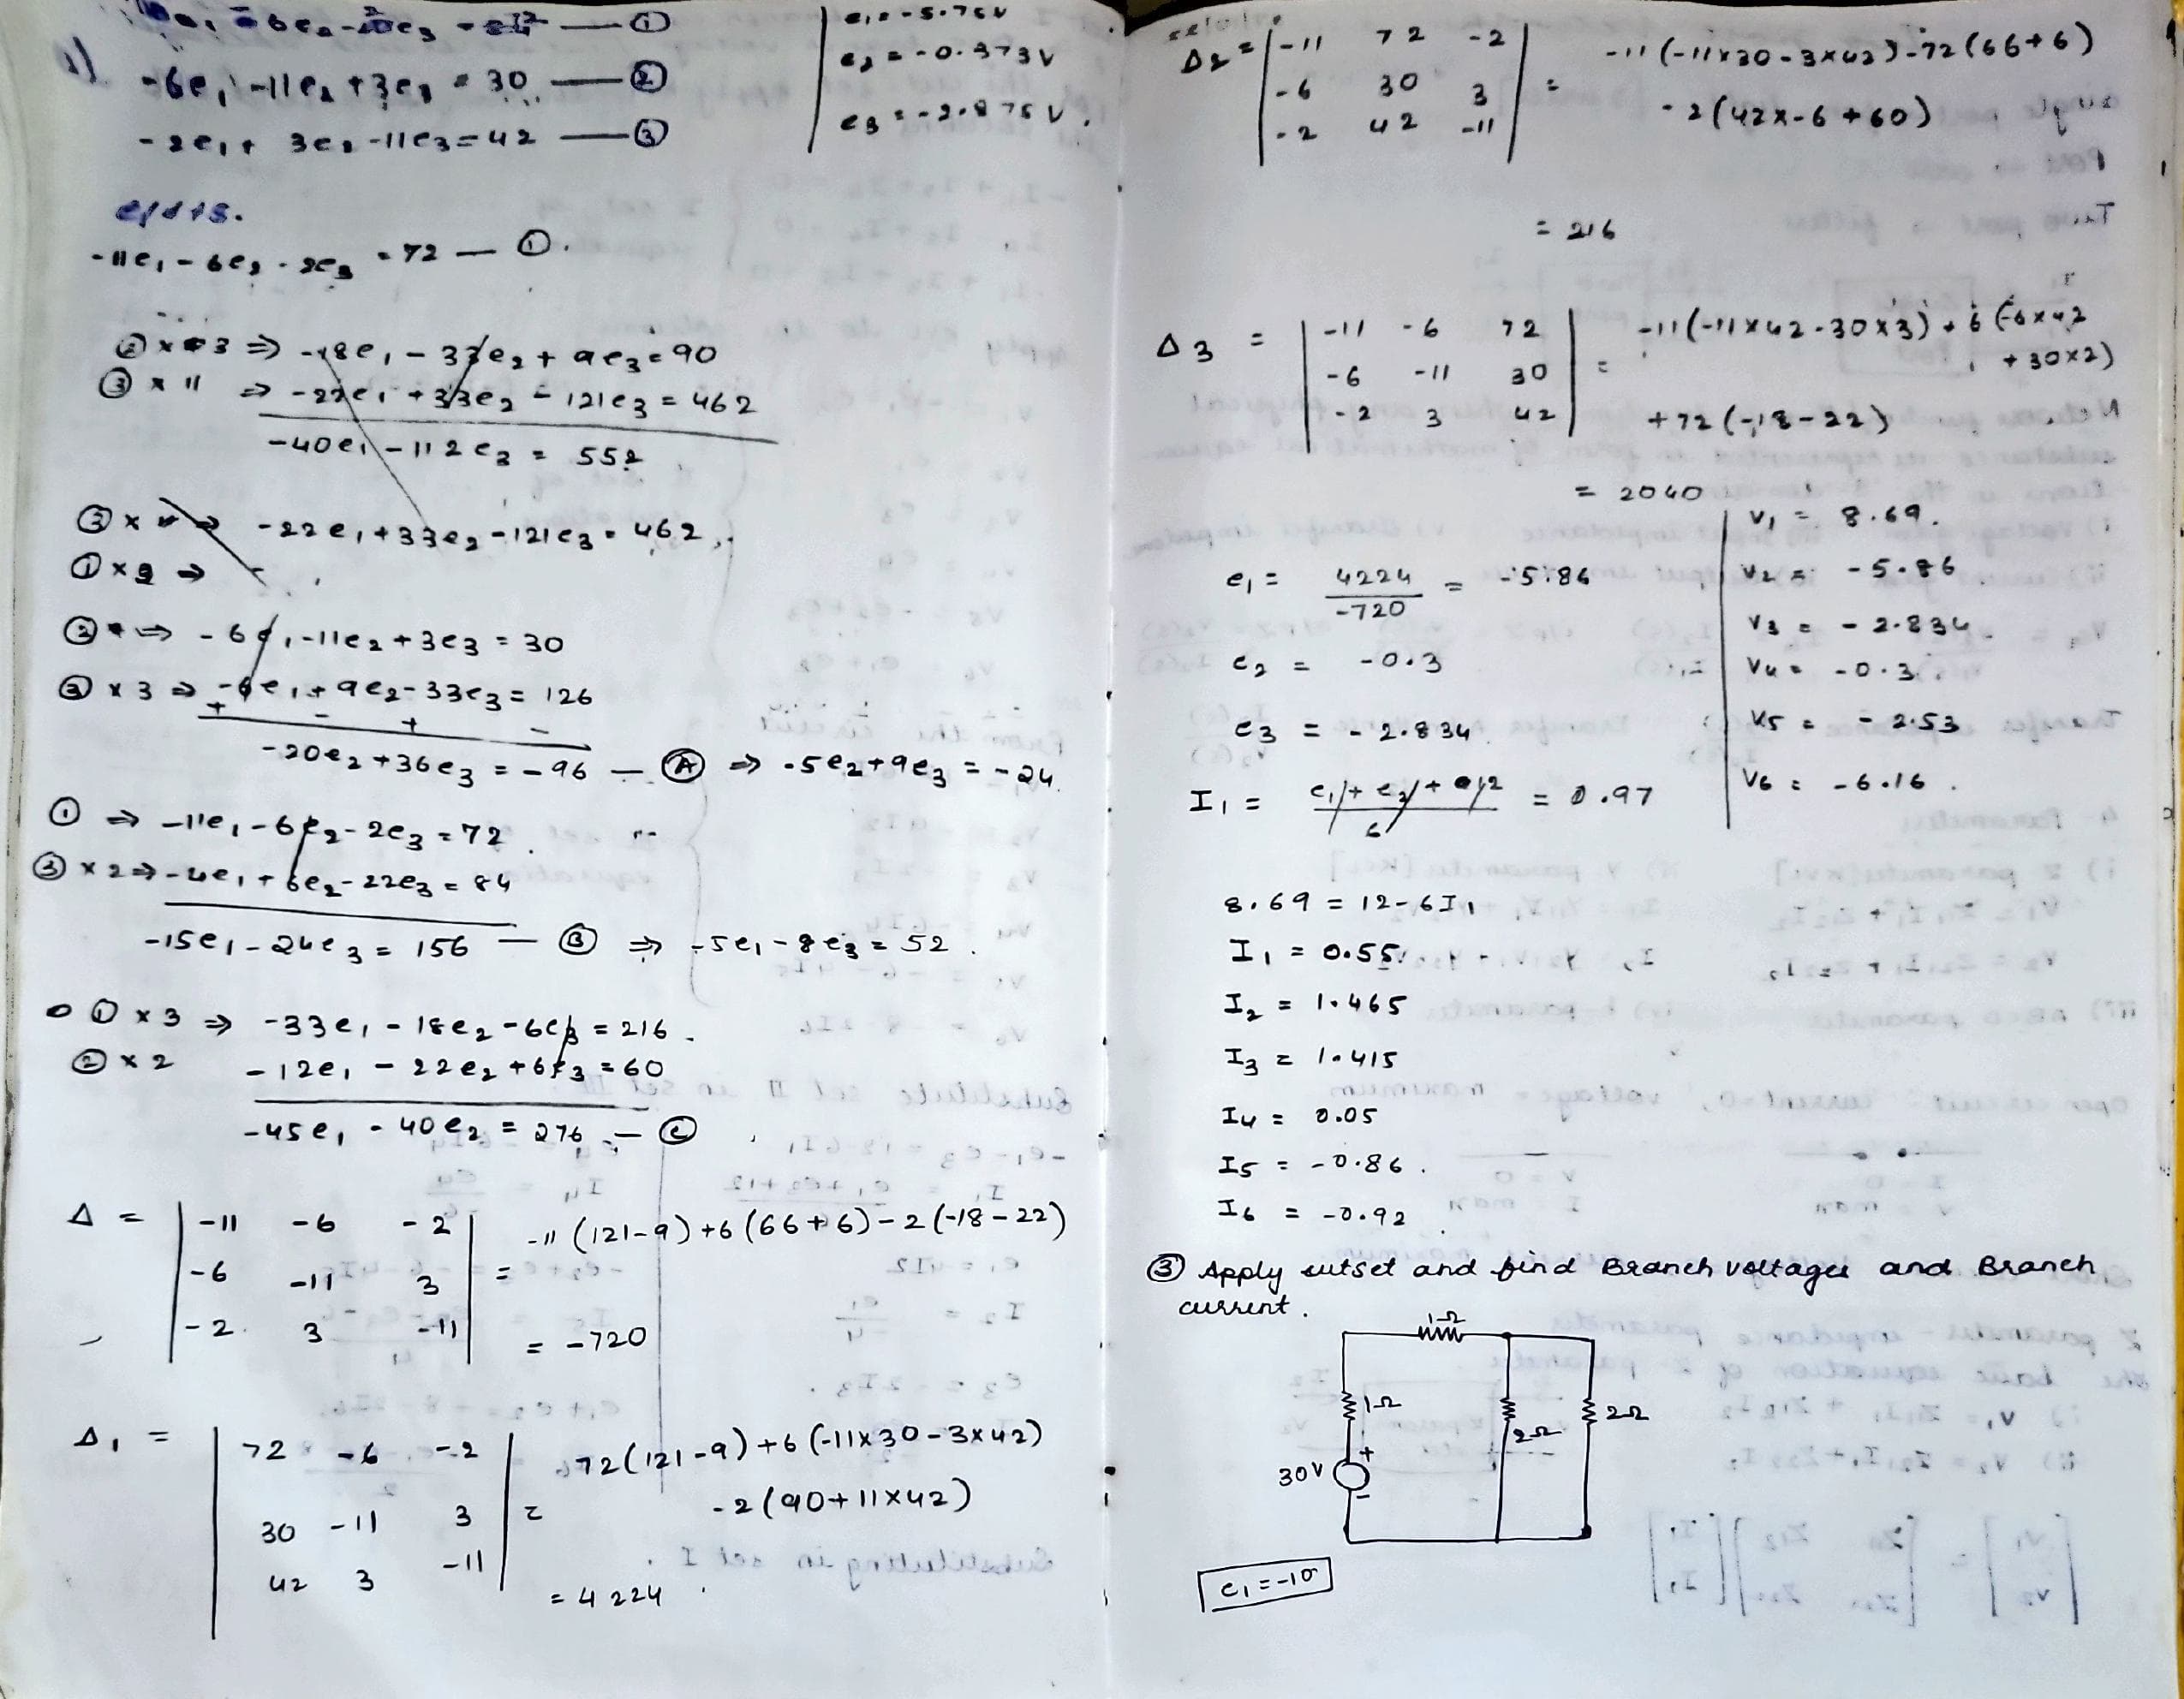 1)
-6e₁ -11e₂ + 3e₃ = 30 — ②
-2e₁ + 3e₂ -11e₃ = 42 — ③
e₁ = -5.75V
e₂ = -0.373V
e₃ = -2.875V.
-11e₁ - 6e₂ - 2e₃ = 72 — ①.
② x 3 ⇒ -18e₁ - 33e₂ + 9e₃ = 90
③ x 11 ⇒ -22e₁ + 33e₂ - 121e₃ = 462
-40e₁ - 112e₃ = 552
③ x 11 ⇒ -22e₁ + 33e₂ - 121e₃ = 462
① x 2 ⇒ -
② ⇒ -6e₁ - 11e₂ + 3e₃ = 30
③ x 3 ⇒ -6e₁ + 9e₂ - 33e₃ = 126
+ - + -
-20e₂ + 36e₃ = -96 — Ⓐ ⇒ -5e₂ + 9e₃ = -24.
① ⇒ -11e₁ - 6e₂ - 2e₃ = 72.
③ x 2 ⇒ -4e₁ + 6e₂ - 22e₃ = 84
-15e₁ - 24e₃ = 156 — Ⓑ ⇒ -5e₁ - 8e₃ = 52.
① x 3 ⇒ -33e₁ - 18e₂ - 6e₃ = 216.
② x 2 -12e₁ - 22e₂ + 6e₃ = 60
-45e₁ - 40e₂ = 276 — Ⓒ
Δ = | -11 -6 -2 | = -11(121-9) + 6(66+6) - 2(-18-22)
| -6 -11 3 |
| -2 3 -11 | = -720
Δ₁ = | 72 -6 -2 | = 72(121-9) + 6(-11x30-3x42)
| 30 -11 3 | -2(90+11x42)
| 42 3 -11 |
= 4224
Δ₂ = | -11 72 -2 | = -11(-11x30-3x42)-72(66+6)
| -6 30 3 | -2(42x-6+60)
| -2 42 -11 |
= 216
Δ₃ = | -11 -6 72 | = -11(-11x42-30x3)+6(-6x42
| -6 -11 30 | +30x2)
| -2 3 42 | +72(-18-22)
= 2040
e₁ = 4224/-720 = -5.86
e₂ = -0.3
e₃ = -2.834
I₁ = e₁ + e₂ + 12 / 6 = 0.97
V₁ = 8.69.
V₂ = -5.86
V₃ = -2.834
V₄ = -0.3
V₅ = -2.53
V₆ = -6.16.
8.69 = 12-6I₁
I₁ = 0.55
I₂ = 1.465
I₃ = 1.415
I₄ = 0.05
I₅ = -0.86.
I₆ = -0.92
③ Apply cutset and find Branch voltages and Branch
current.
1Ω
1Ω
2Ω
2Ω
30V
+
-
e₁ = -10